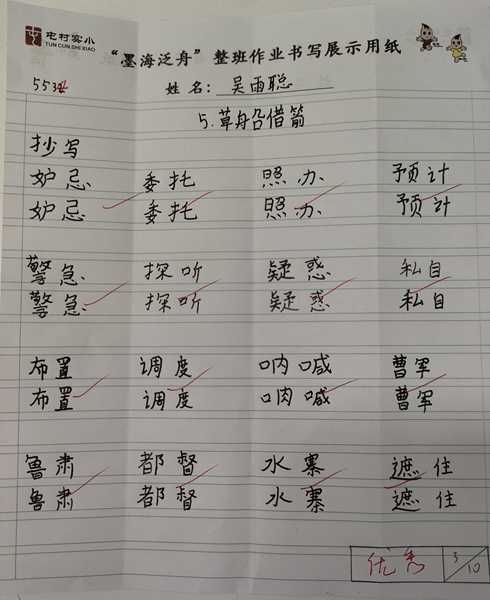 屯村实小
TUN CUN SHI XIAO
“墨海泛舟”整班作业书写展示用纸
姓名：吴雨聪
5.草船借箭
抄写
妒忌 委托 照办 预计
妒忌 委托 照办 预计
警急 探听 疑惑 私自
警急 探听 疑惑 私自
布置 调度 呐喊 曹军
布置 调度 呐喊 曹军
鲁肃 都督 水寨 遮住
鲁肃 都督 水寨 遮住
优秀 3/10